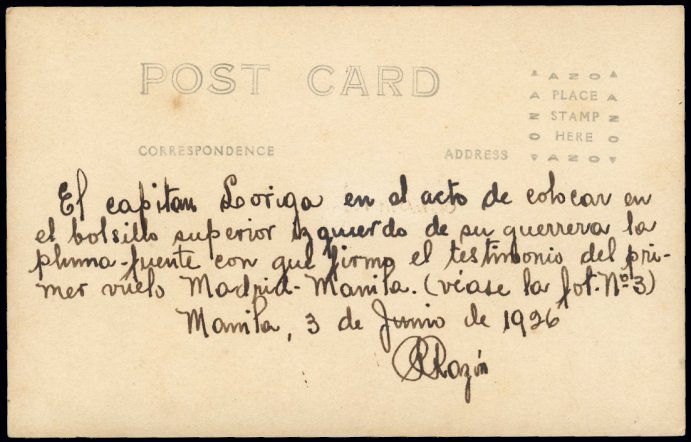 POST CARD
▲ AZO ▲
PLACE
STAMP
HERE
▼ AZO ▼
CORRESPONDENCE
ADDRESS
El capitan Loriga en el acto de colocar en
el bolsillo superior izquierdo de su guerrera la
pluma-fuente con que firmo el testimonio del pri-
mer vuelo Madrid-Manila. (véase la fot. Nº 3)
Manila, 3 de Junio de 1926